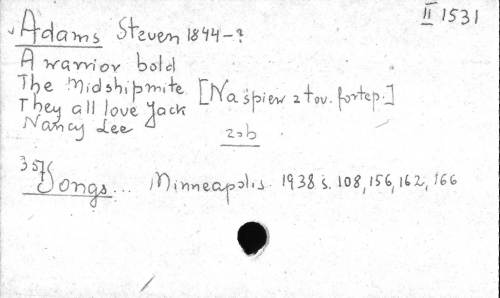 II 1531
Adams Steven 1844-?
A warrior bold
The Midshipmite [Na śpiew z tow. fortep.]
They all love Jack
Nancy Lee
zob
357 Songs... Minneapolis 1938 s. 108, 156, 162, 166